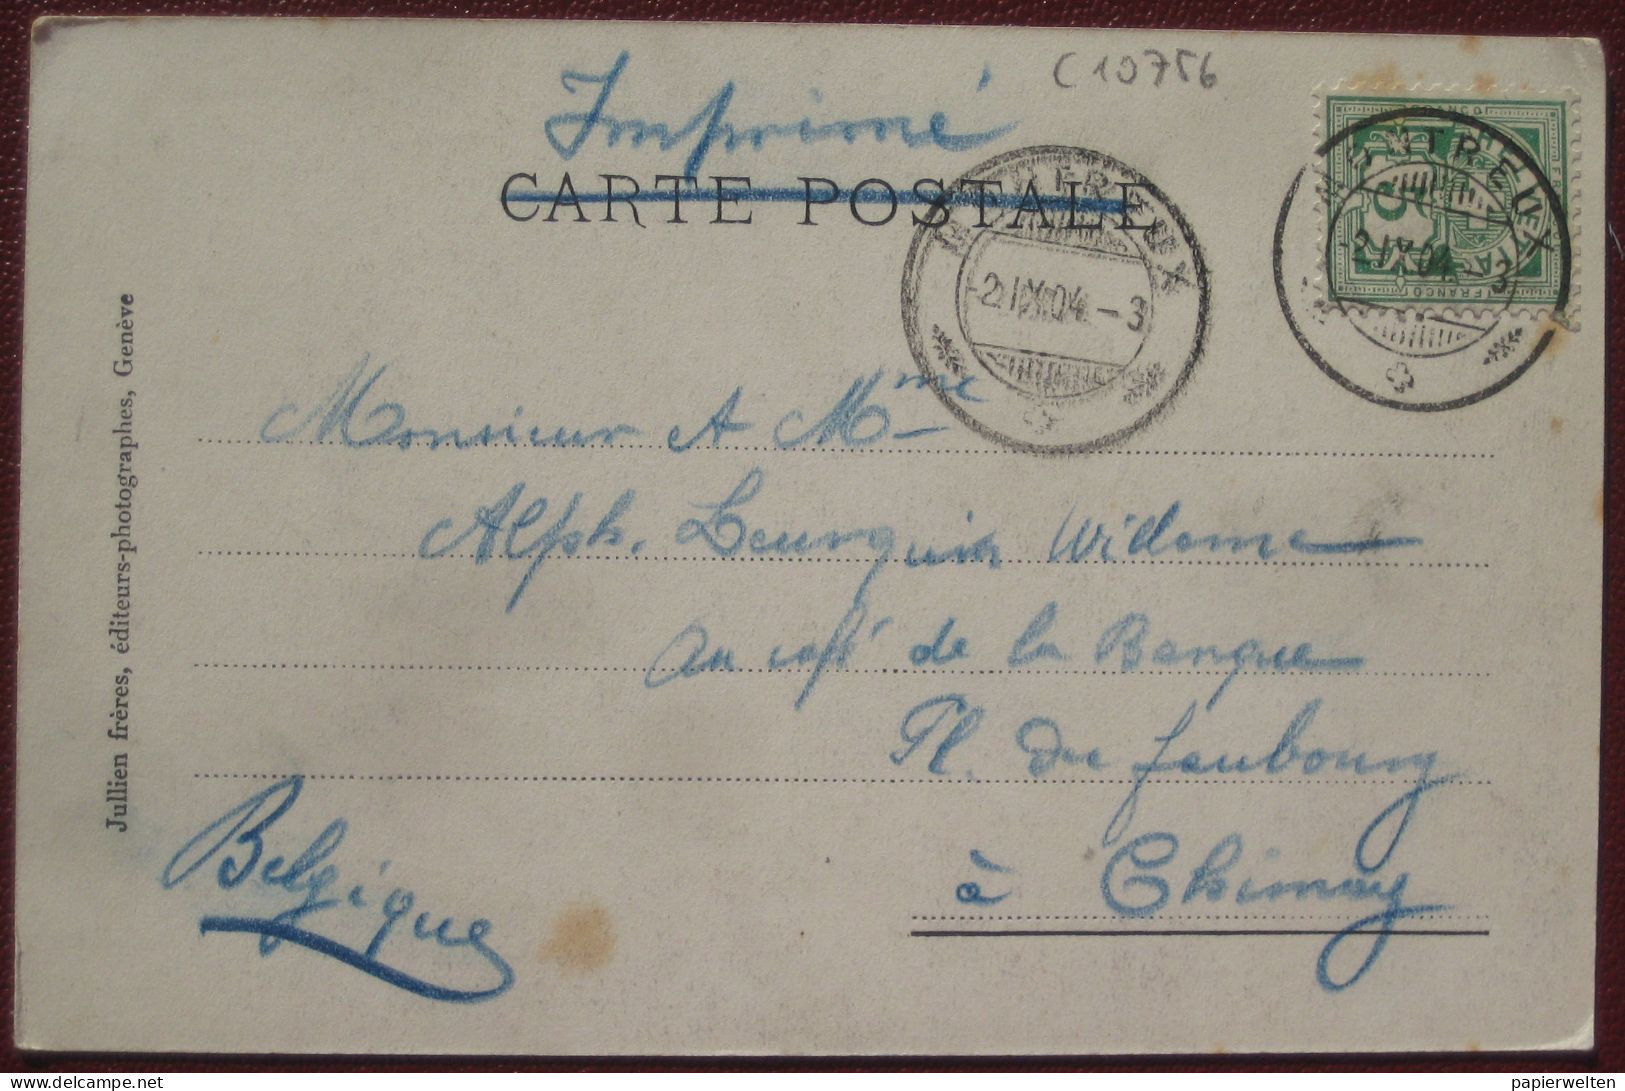 C 10756
Imprimé
CARTE POSTALE
MONTREUX
-2.IX.04.-3
MONTREUX
-2.IX.04.-3
FRANCO
5
FRANCO
Monsieur et Mme
Alph. Leurquin Wideme
au café de la Banque
Pl. du faubourg
à Chimay
Belgique
Jullien frères, éditeurs-photographes, Genève
www.delcampe.net
papierwelten